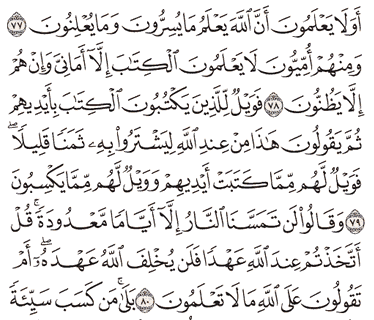 أَوَلَا يَعْلَمُونَ أَنَّ ٱللَّهَ يَعْلَمُ مَا يُسِرُّونَ وَمَا يُعْلِنُونَ ٧٧
وَمِنْهُمْ أُمِّيُّونَ لَا يَعْلَمُونَ ٱلْكِتَٰبَ إِلَّآ أَمَانِيَّ وَإِنْ هُمْ
إِلَّا يَظُنُّونَ ٧٨ فَوَيْلٌ لِّلَّذِينَ يَكْتُبُونَ ٱلْكِتَٰبَ بِأَيْدِيهِمْ
ثُمَّ يَقُولُونَ هَٰذَا مِنْ عِندِ ٱللَّهِ لِيَشْتَرُوا۟ بِهِۦ ثَمَنًا قَلِيلًا ۖ
فَوَيْلٌ لَّهُم مِّمَّا كَتَبَتْ أَيْدِيهِمْ وَوَيْلٌ لَّهُم مِّمَّا يَكْسِبُونَ
٧٩ وَقَالُوا۟ لَن تَمَسَّنَا ٱلنَّارُ إِلَّآ أَيَّامًا مَّعْدُودَةً ۚ قُلْ
أَتَّخَذْتُمْ عِندَ ٱللَّهِ عَهْدًا فَلَن يُخْلِفَ ٱللَّهُ عَهْدَهُۥٓ ۖ أَمْ
تَقُولُونَ عَلَى ٱللَّهِ مَا لَا تَعْلَمُونَ ٨٠ بَلَىٰ ۚ مَن كَسَبَ سَيِّئَةً